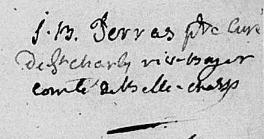 J. B. Perras ptre Curé
De St charly riv. boyer
comté de Belle-chasse